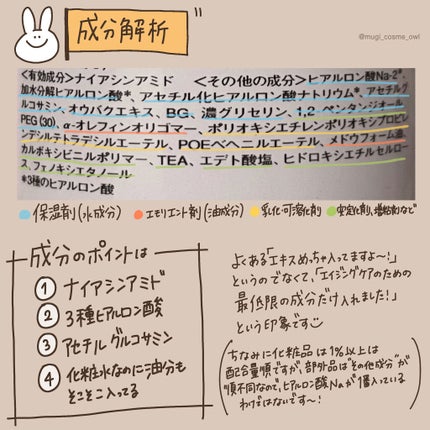 成分解析
@mugi_cosme_owl
<有効成分>ナイアシンアミド <その他の成分>ヒアルロン酸Na-2*、
加水分解ヒアルロン酸*、アセチル化ヒアルロン酸ナトリウム*、アセチルグ
ルコサミン、オウバクエキス、BG、濃グリセリン、1,2-ペンタンジオール
PEG(30)、α-オレフィンオリゴマー、ポリオキシエチレンポリオキシプロピレ
ンデシルテトラデシルエーテル、POEベヘニルエーテル、メドウフォーム油、
カルボキシビニルポリマー、TEA、エデト酸塩、ヒドロキシエチルセルロー
ス、フェノキシエタノール
*3種のヒアルロン酸
保湿剤(水成分) エモリエント剤(油成分) 乳化・可溶化剤 安定化剤、増粘剤など
成分のポイントは
① ナイアシンアミド
② 3種ヒアルロン酸
③ アセチルグルコサミン
④ 化粧水なのに油分も
そこそこ入ってる
よくある「エキスめっちゃ入ってますよ〜!」
というのでなくて、「エイジングケアのための
最低限の成分だけ入れました!」
という印象です
(ちなみに化粧品は1%以上は
配合量順ですが、部外品は"その他成分"が
順不同なので、ヒアルロン酸Naが1番入っている
わけではないです〜!)